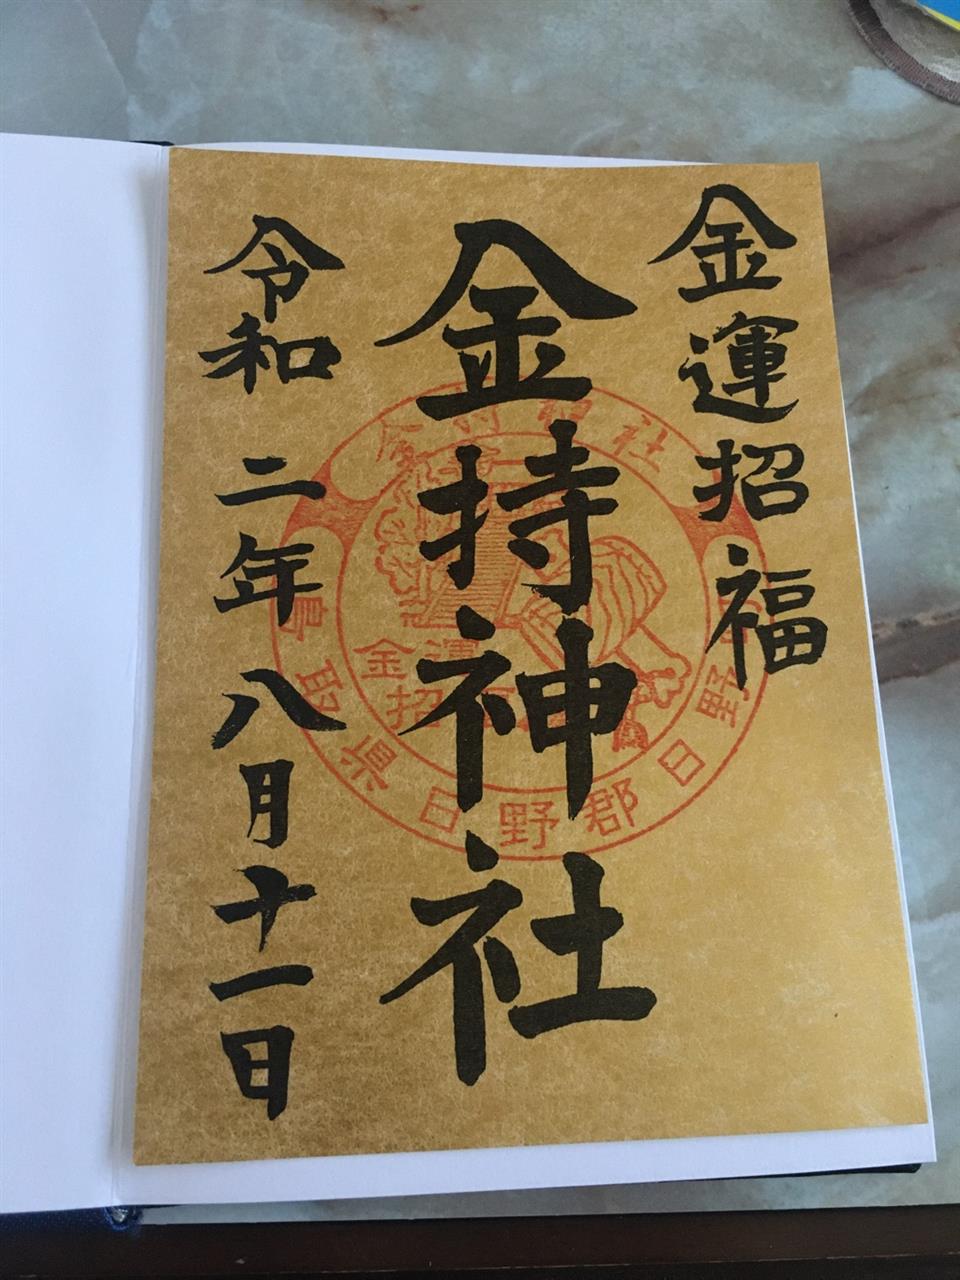 金運招福
金持神社
令和 二年 八月十一日
金持神社
鳥取県日野郡日野
金運
招